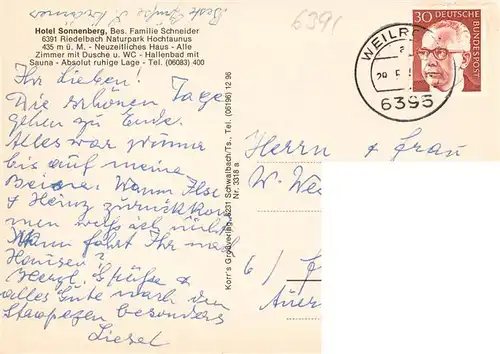 Beste Grüße
6391
Hotel Sonnenberg, Bes. Familie Schneider
6391 Riedelbach Naturpark Hochtaunus
435 m ü. M. - Neuzeitliches Haus - Alle
Zimmer mit Dusche u. WC - Hallenbad mit
Sauna - Absolut ruhige Lage - Tel. (06083) 400
Ihr Lieben!
Die schönen Tage
gehen zu Ende.
Alles war prima
bis auf meine
Beine. Wann Ilse
& Heinz zurückkom
men weiß ich nicht.
Wann fährt Ihr nach
Hausen?
Herzl. Grüße &
alles Gute auch den
besonders
Liesel
Korr's Großverlag, 6231 Schwalbach/Ts., Tel. (06196) 12 96
Nr. 3318 a
30 DEUTSCHE BUNDESPOST
WEILRO
6395
Herrn & Frau
W. We
6/
Auer